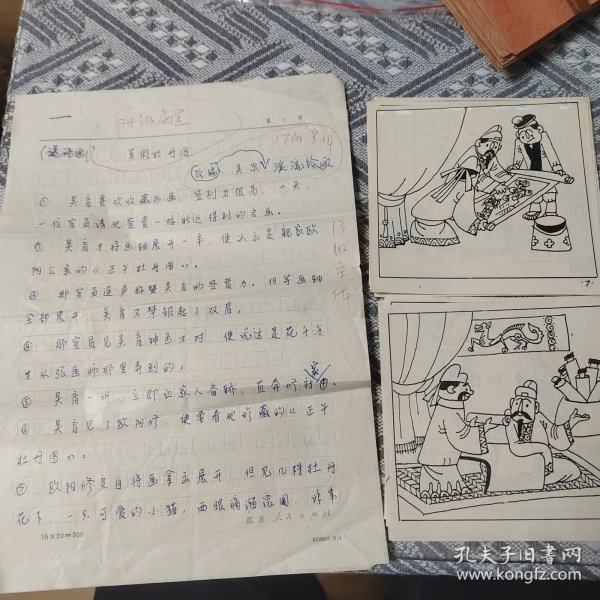 一
第 页
(谜语画) 真假牡丹图
改编 吴 溪流绘画
① 吴育喜欢收藏古画，鉴别力很高，一天，
一位官员请他鉴赏一幅新近得到的古画。
② 吴育才将画轴展开一半，便认出是亲家欧
阳公家的《正午牡丹图》。
③ 那官员连声称赞吴育的鉴赏力。但等画轴
全部展开，吴育又禁皱起了双眉。
④ 那官员见吴育神色不对，便说这是花千金
才从张画师那里弄到的。
⑤ 吴育一听，立即让家人备轿，直奔修家。
⑥ 吴育见了欧阳修，便要看他珍藏的《正午
牡丹图》。
⑦ 欧阳修亲自将画拿来展开，但见几株牡丹
花下，一只可爱的小猫，两眼滴溜滚圆，非常
15×20=300
江苏人民出版社
·7·
孔夫子旧书网
www.kongfz.com